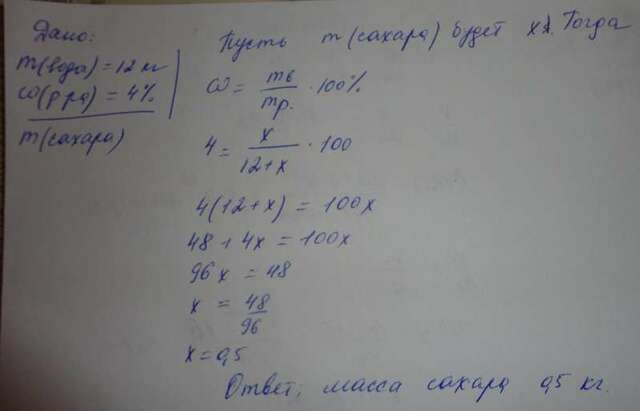 Дано:
m(вода) = 12 кг
ω(р-ра) = 4%
m(сахара)
Пусть m(сахара) будет х. Тогда
ω = mв / mр. · 100%
4 = x / 12+x · 100
4(12+x) = 100x
48+4x = 100x
96x = 48
x = 48 / 96
x = 0,5
Ответ: масса сахара 0,5 кг.